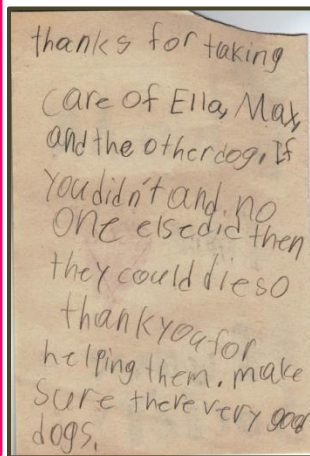 thanks for taking
care of Ella, Max,
and the other dog. If
you didn't and no
one else did then
they could die so
thank you for
helping them. make
sure there very good
dogs.